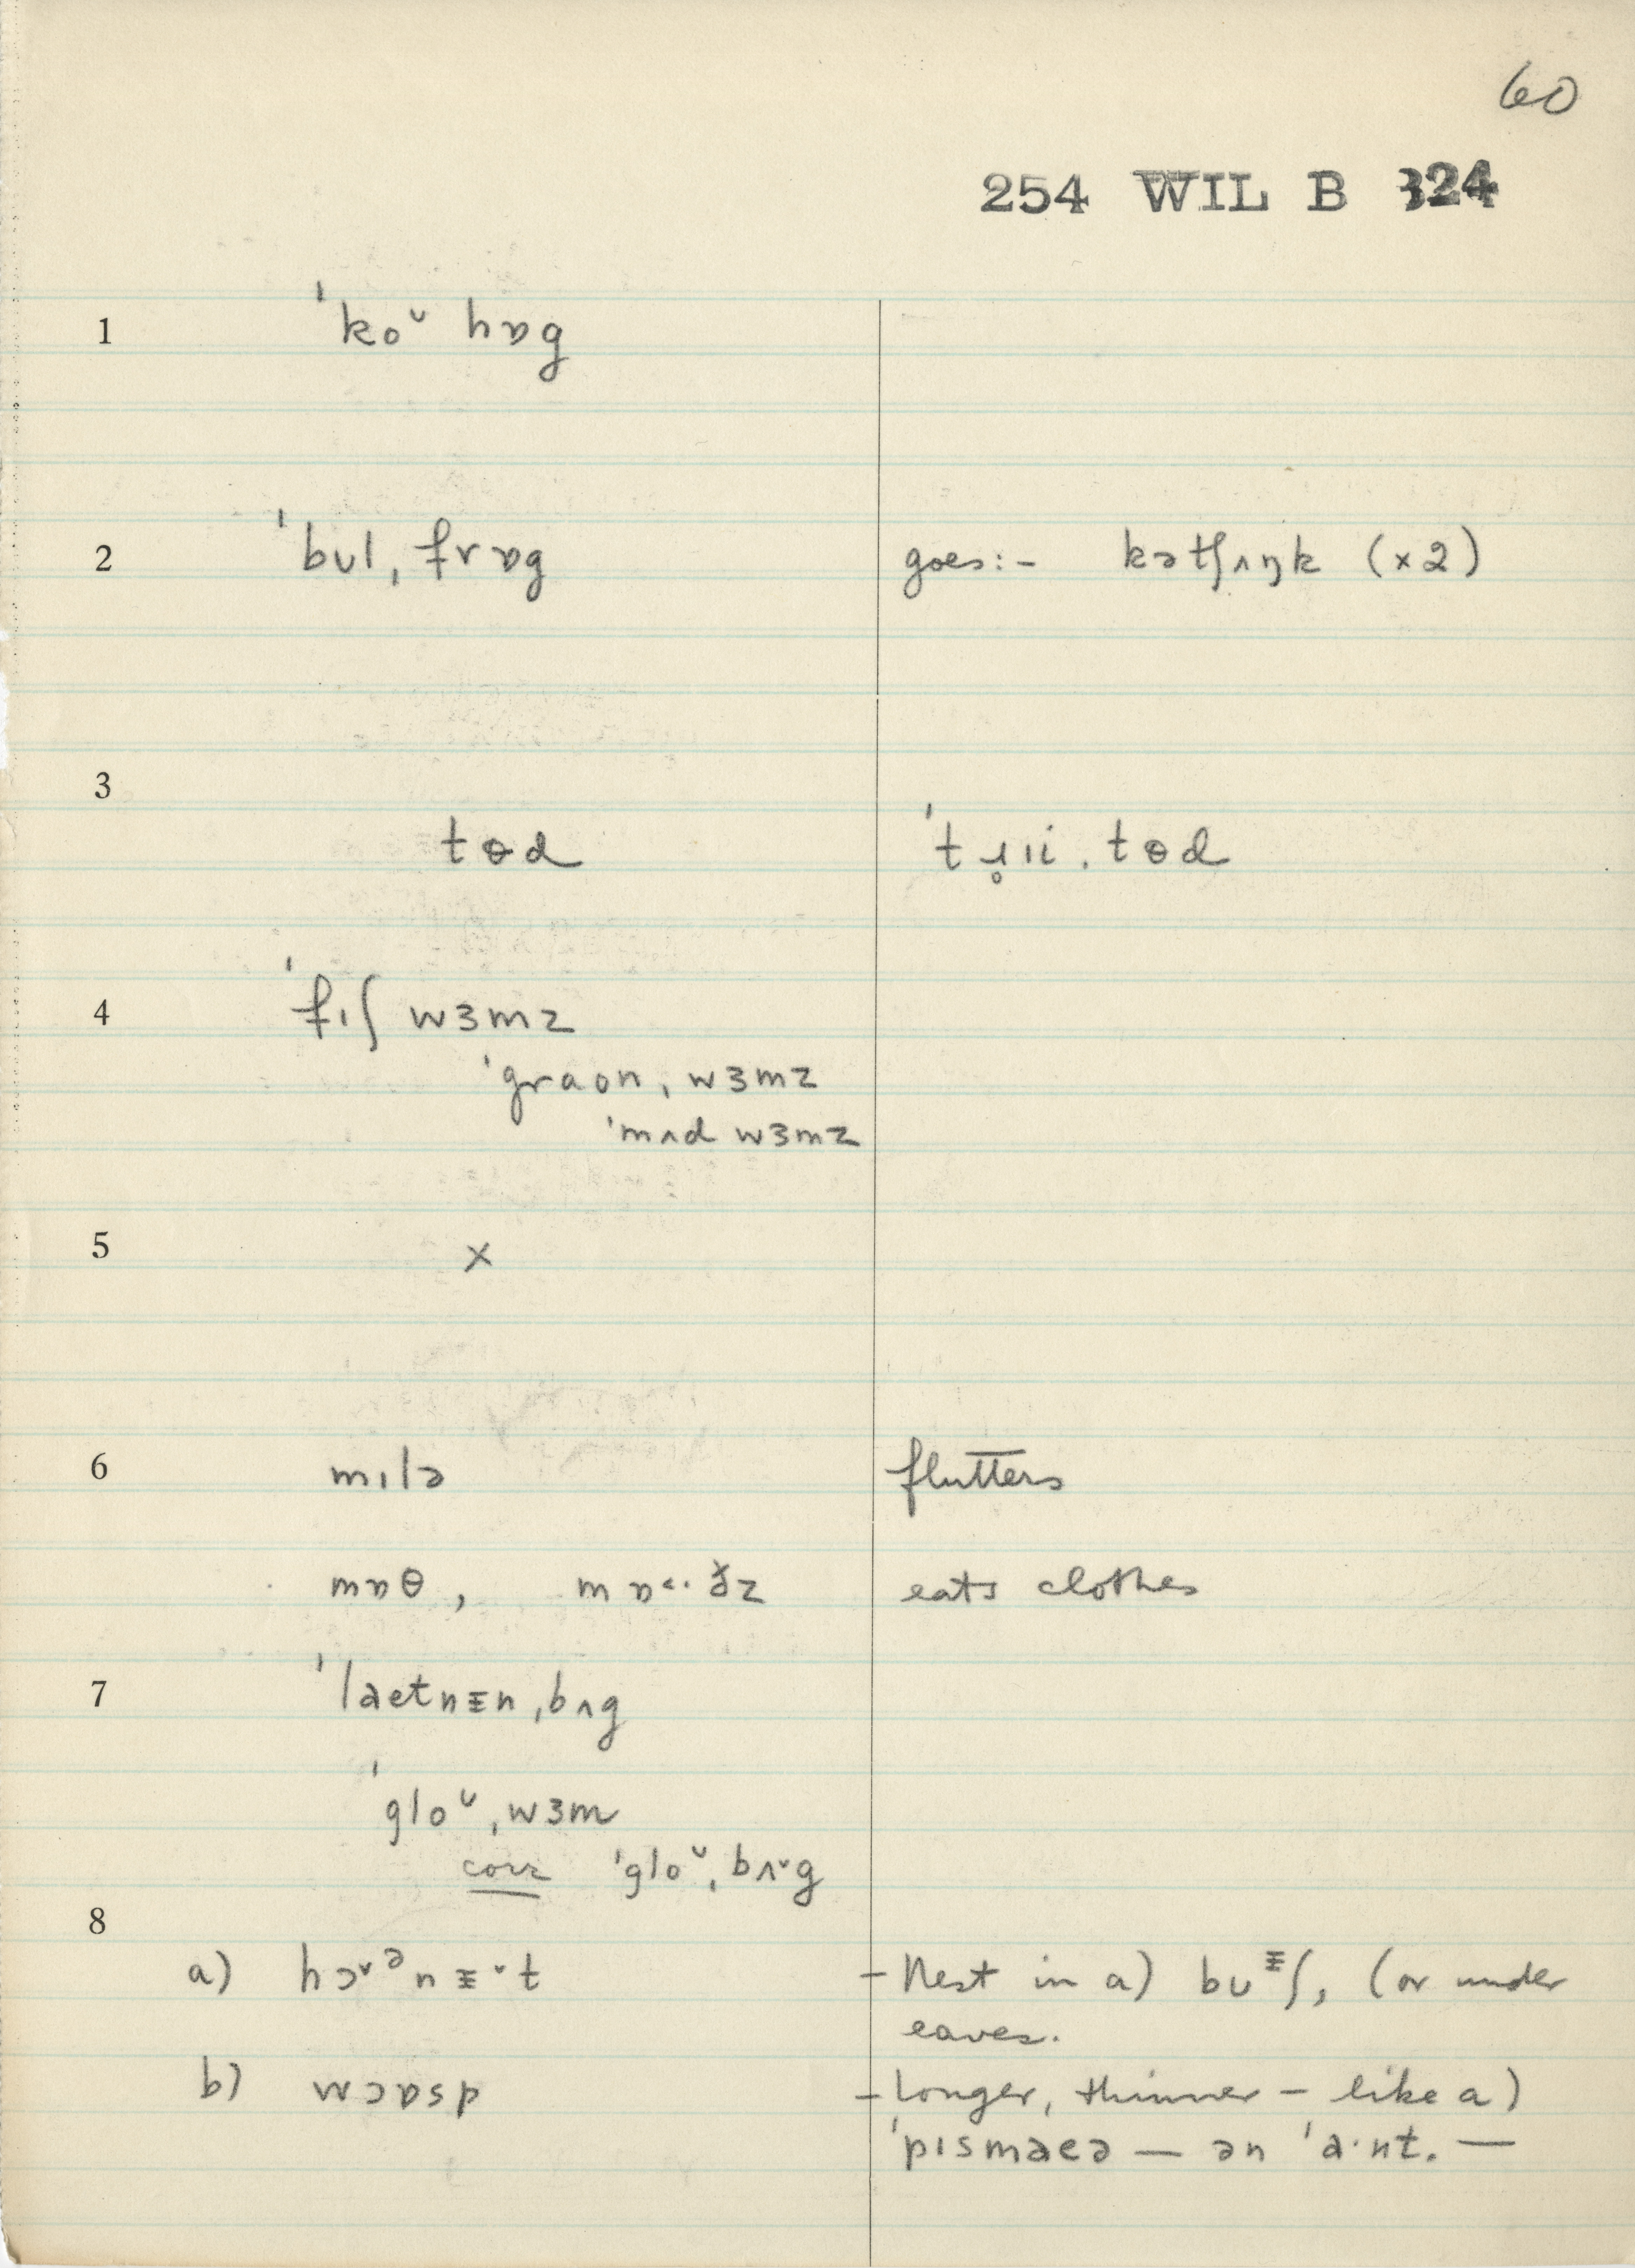 60
254 WIL B 324
1 ˈkoᶷ hɒg
2 ˈbʊl ˌfrɒg goes:- kətʃʌŋk (×2)
3
tɵd ˈtɹ̥ɪi ˌtɵd
4 ˈfɪʃ wɜmz
ˈgraʊn ˌwɜmz
ˈmʌd wɜmz
5 ×
6 mɪlə flutters
mɒθ, mɒ˂·ðz eats clothes
7 ˈlaetnɪ̵n ˌbʌg
ˈgloᶷ ˌwɜm
corr ˈgloᶷ ˌbʌ˅g
8
a) hɔ˅ᵊnɪ̵˅t – Nest in a) bʊᶤʃ, (or under
eaves.
b) wɔɒsp – longer, thinner – like a)
ˈpɪsmaeə — ən ˈa·nt. —